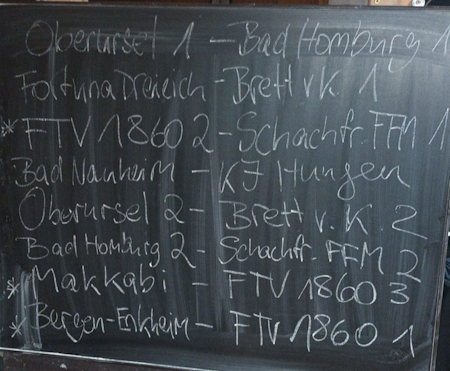 Oberursel 1 - Bad Homburg 1
Fortuna Dreieich - Brett v.K. 1
* FTV 1860 2 - Schachfr. FFM 1
Bad Nauheim - KJ Hungen
Oberursel 2 - Brett v. K. 2
Bad Homburg 2 - Schachfr. FFM 2
* Makkabi - FTV 1860 3
* Bergen-Enkheim - FTV 1860 1